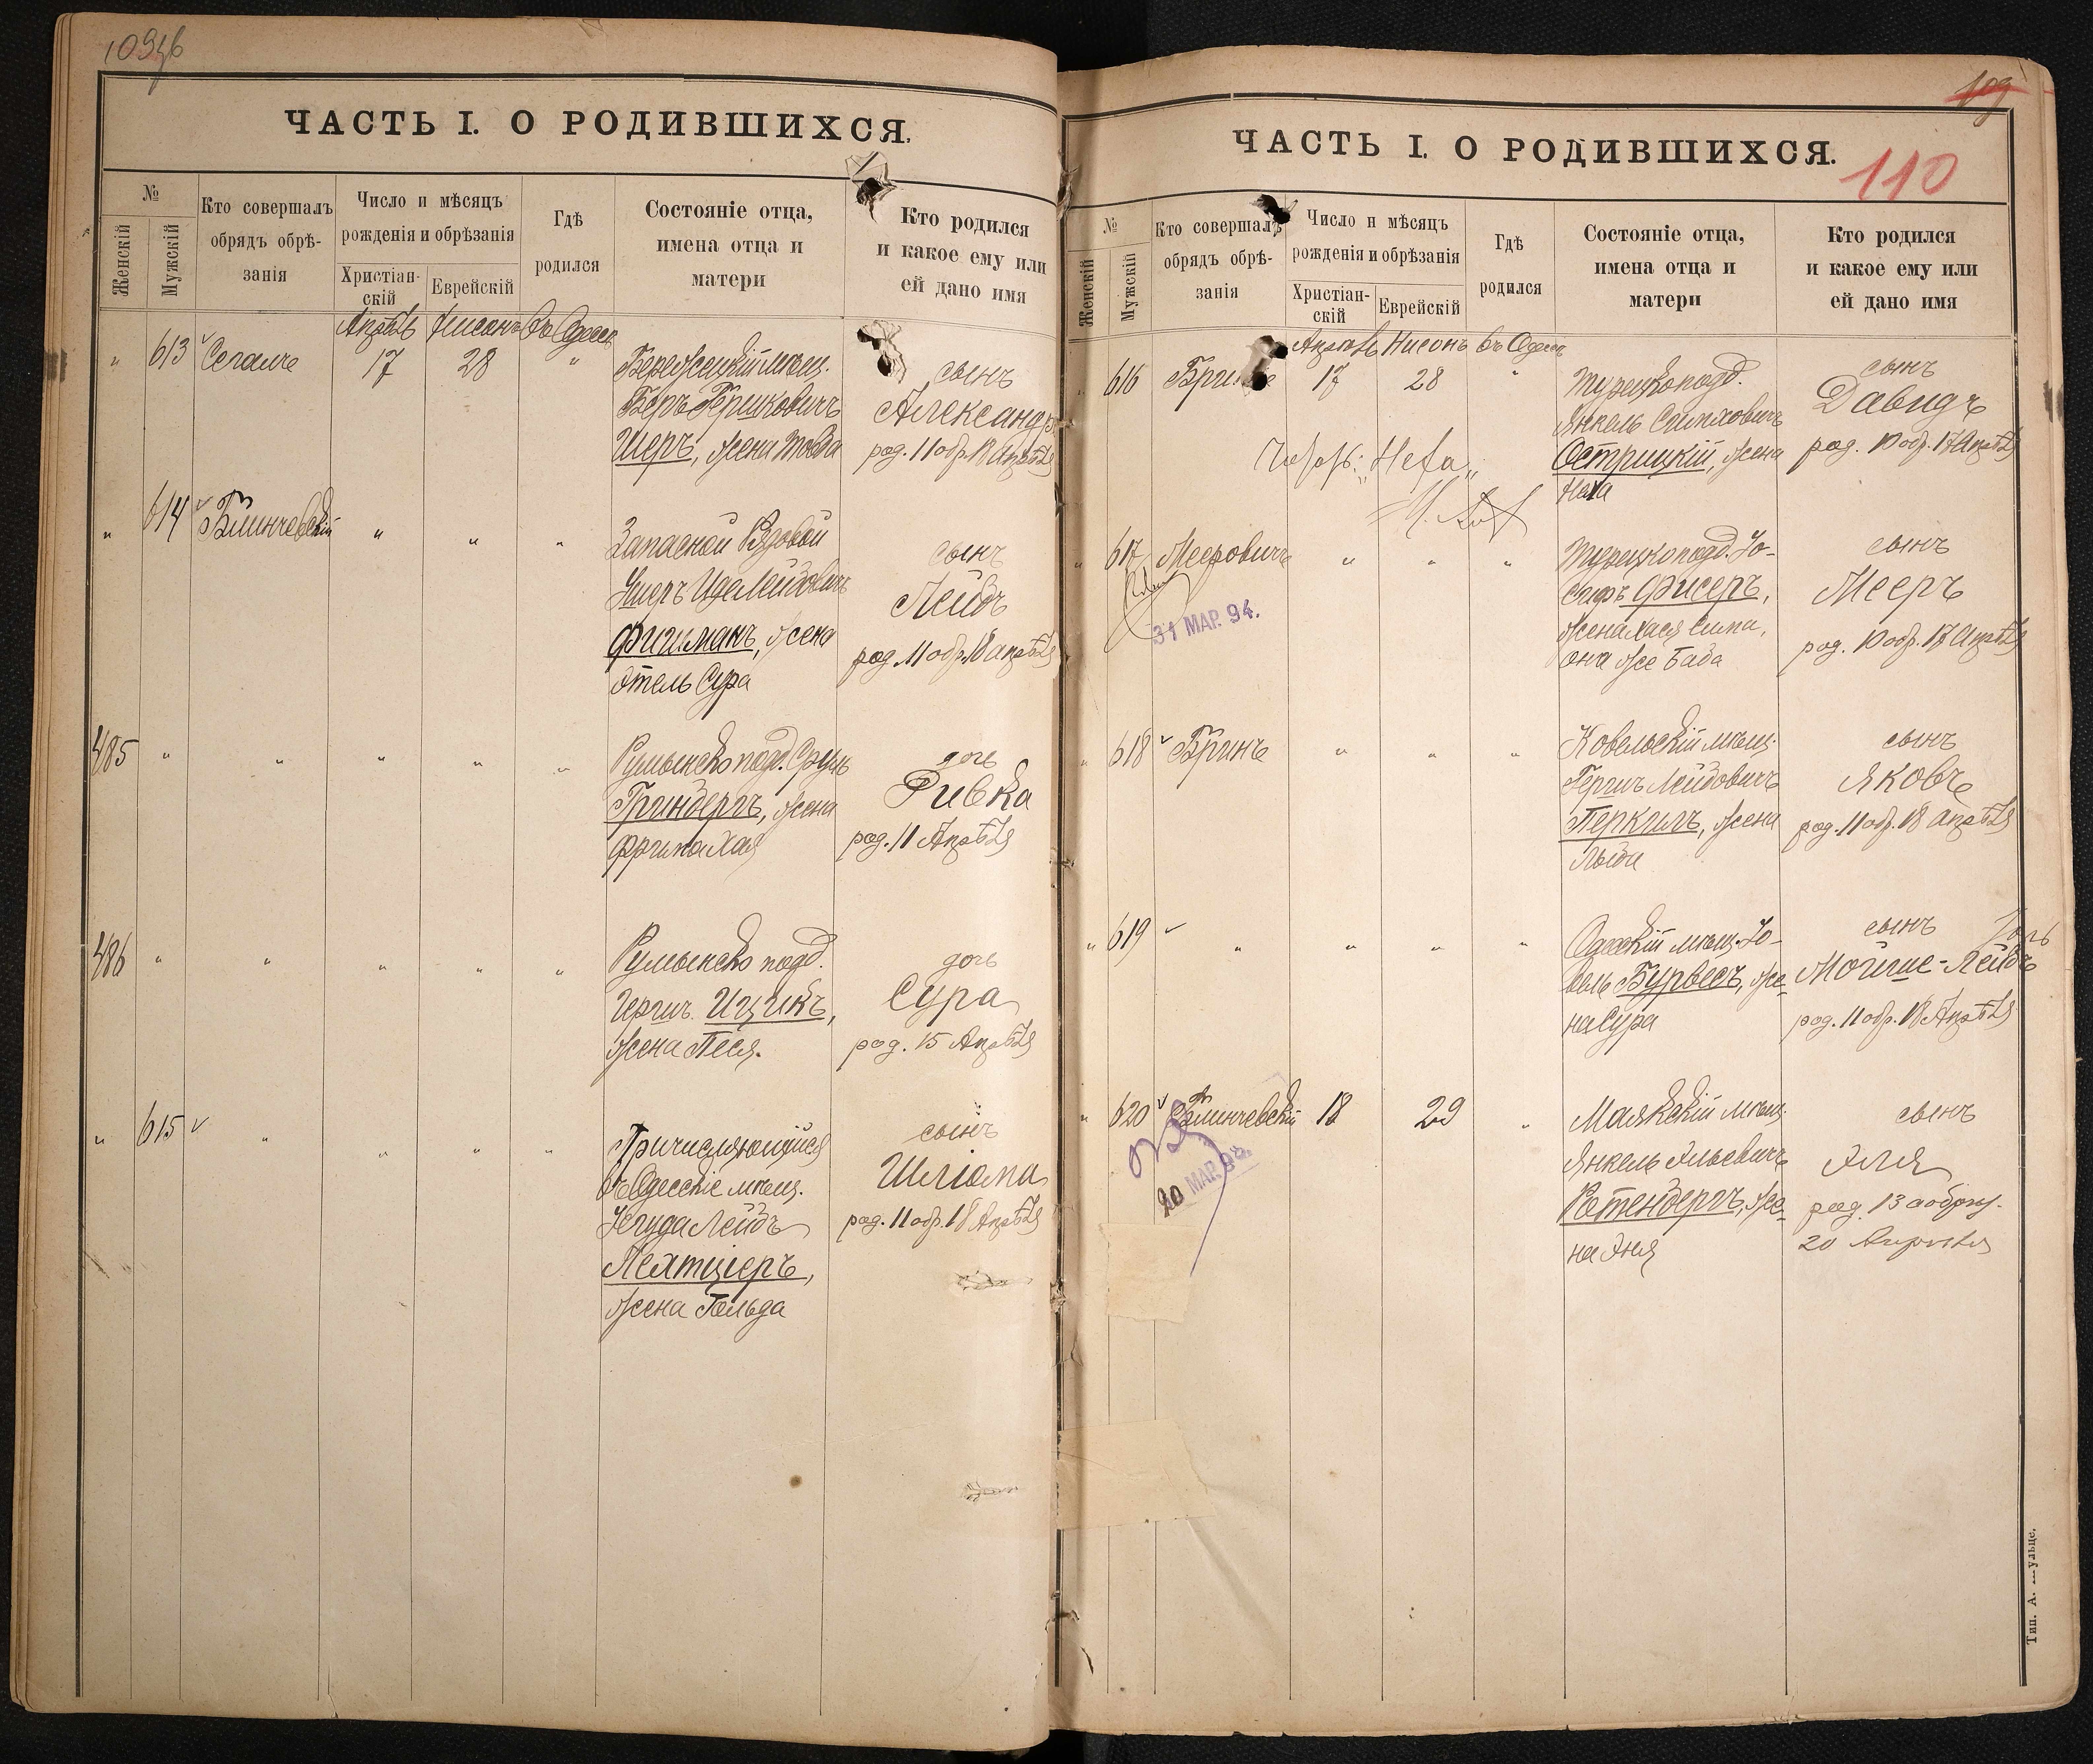 ЧАСТЬ I. О РОДИВШИХСЯ.
№
Женскій
Мужскій
Кто совершалъ
обрядъ обрѣ-
занія
Число и мѣсяцъ
рожденія и обрѣзанія
Христіан-
скій
Еврейскій
Гдѣ
родился
Состояніе отца,
имена отца и
матери
Кто родился
и какое ему или
ей дано имя
Апрѣль Нисонъ Въ Одессѣ
" 613 Сегалъ 17 28 "
мѣщ.
Беръ Гершковичъ
Шеръ, жена Товба
сынъ
Александръ
род. 11 обр. 18 апрѣля
" 614 " " "
Запасной Рядовой
жена
Этель Сура
сынъ
Лейбъ
род. 11 обр. 18 апрѣля
485 " " " " "
Румынско подд. Сруль
Гринбергъ, жена
Фрима Хая
дочь
Ривка
род. 11 Апрѣля
486 " " " " "
Румынско подд.
Гершъ Ицикъ,
жена Песя.
дочь
Сура
род. 15 Апрѣля
" 615 " " " "
Причисляющійся
въ Одесскіе мѣщ.
Іегуда Лейбъ
Лехтціеръ,
жена Гольда
сынъ
Шліома
род. 11 обр. 18 Апрѣля
ЧАСТЬ I. О РОДИВШИХСЯ.
110
№
Женскій
Мужскій
Кто совершалъ
обрядъ обрѣ-
занія
Число и мѣсяцъ
рожденія и обрѣзанія
Христіан-
скій
Еврейскій
Гдѣ
родился
Состояніе отца,
имена отца и
матери
Кто родился
и какое ему или
ей дано имя
Апрѣль Нисонъ Въ Одессѣ
" 616 17 28 "
Турецко подд.
Янкель
Острицкій, жена
сынъ
Давидъ
род. 10 обр. 17 Апрѣля
" 617 Мееровичъ " " "
31 МАР. 94.
Турецко подд. Іо-
сифъ Фисеръ,
жена Хася Сима,
она же Баба
сынъ
Мееръ
род. 10 обр. 17 апрѣля
" 618 Бринъ " " "
Ковельскій мѣщ.
Гершъ Лейбовичъ
жена
сынъ
Яковъ
род. 11 обр. 18 апрѣля
" 619 " " " "
Одесскій мѣщ. Іо-
жe-
на Сура
сынъ
Мойше-Лейбъ
род. 11 обр. 18 Апрѣля
" 620 18 29 "
20 МАР.
Маякскій мѣщ.
Янкель Эльевичъ
Ротенбергъ, же-
на Эня
сынъ
Эля
род. 13 а обрѣз.
20 Апрѣля
Тип. А.